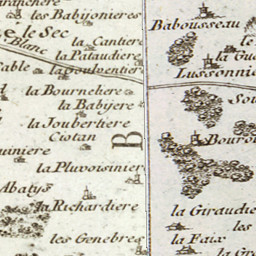 les Babijonieres
le Sec
Blanc
la Cantiere
la Pataudiere
la Poulventier
la Bourneliere
la Babijere
la Joubertiere
Ciotan
B
uiniere
la Pluvoisiniere
Abatys
la Richardiere
les Genebres
Babousseau
le
la Gue
Lussonnie
Sou
Bourou
la Giraudie
les
la Faix
la Gra